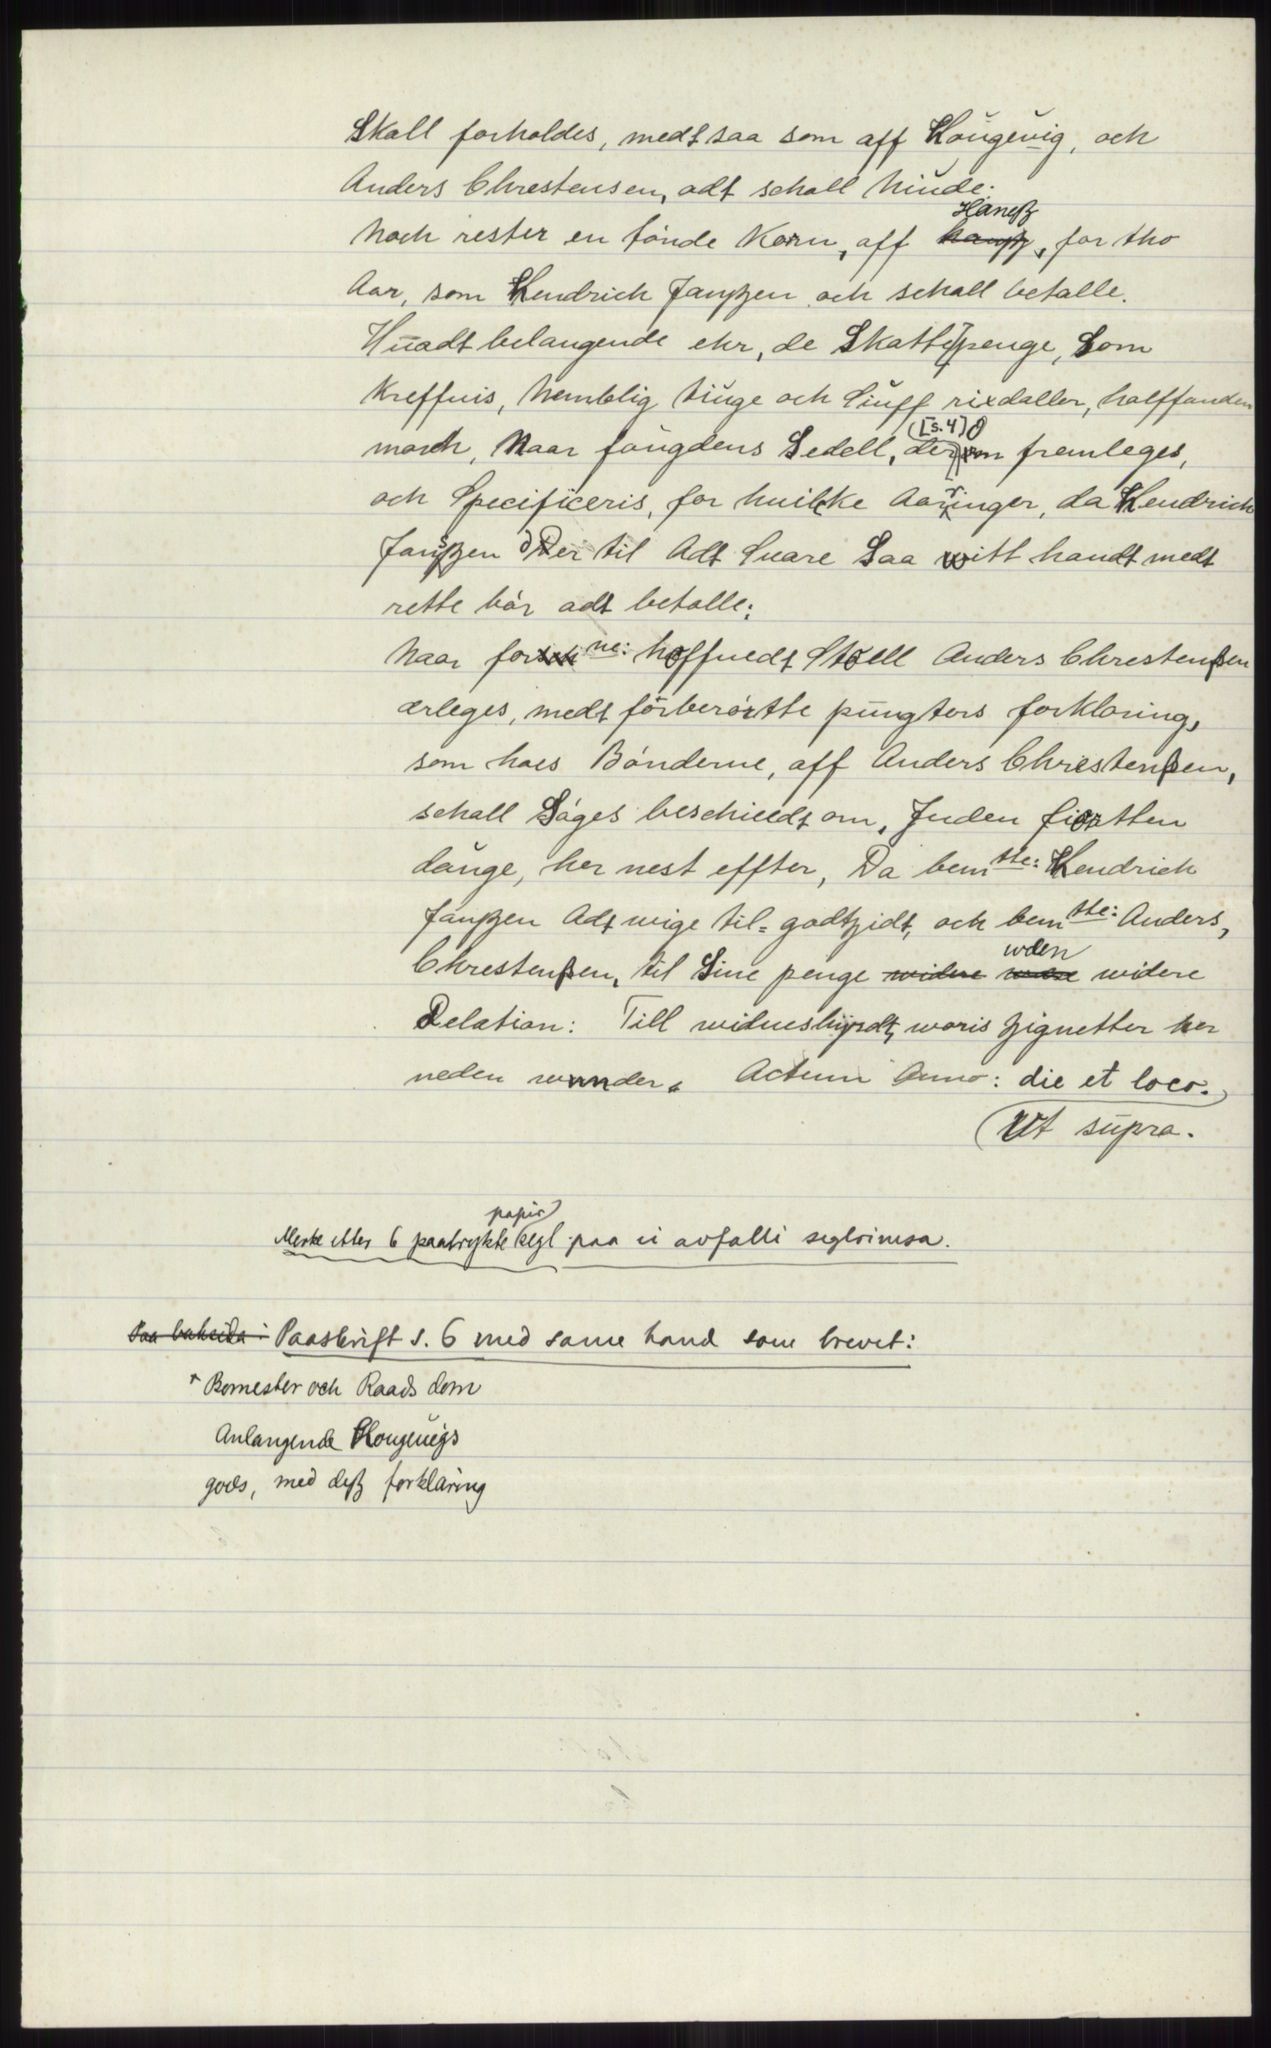 Skall forholdes, medt saa som aff Hougeuig, och
Anders Chrestensen, adt schall hiude:
Noch rester en tönde Korn, aff Haneß, for tho
Aar, som Hendrich Janßen och schall betalle.
Huadt belangende ehr, de Skatte penge, Som
Kreffuis, Nemblig tiuge och Siuff rixdaller, halffanden
march, Naar fougdens Sedell, der [s. 4] om fremleges,
och Specificeris, for huilcke Aaringer, da Hendrich
Janßen der til Adt Suare Saa witt handt medt
rette bör adt betalle;
Naar forne: hoffuedt Stoell Anders Chrestenßen
erleges, medt förberörtte püngters forklaring,
som hoes Bönderne, aff Anders Chrestenßen,
schall Söges beschiedt om, Inden fiortten
dauge, her nest effter, Da bemtte: Hendrich
Janßen Adt wige til-godtzidt, och bemtte: Anders,
Chrestenßen, til Sine penge widere wden widere
Delation: Till widnesbyrdt, woris Zignetter her
neden wnder. Actum Anno: die et loco.
Ut supra.
Merke etter 6 paatrykte papir segl paa ei avfalli seglrimsa.
Paa baksida: Paaskrift s. 6 med same hand som brevet:
"Bomester och Raads dom
Anlangende Hougeuigs
gods, med deß forklaring